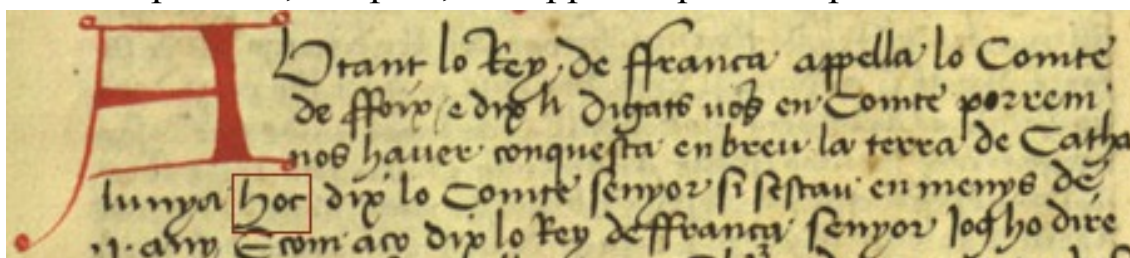 Abtant lo Rey de ffranca appella lo Comte
de ffoix e dix li digats uos en Comte porrem
nos hauer conquesta en breu la terra de Catha
lunya hoc dix lo Comte senyor si sestau en menys de
ij. any E com aço dix lo Rey deffranca senyor Joq ho dire